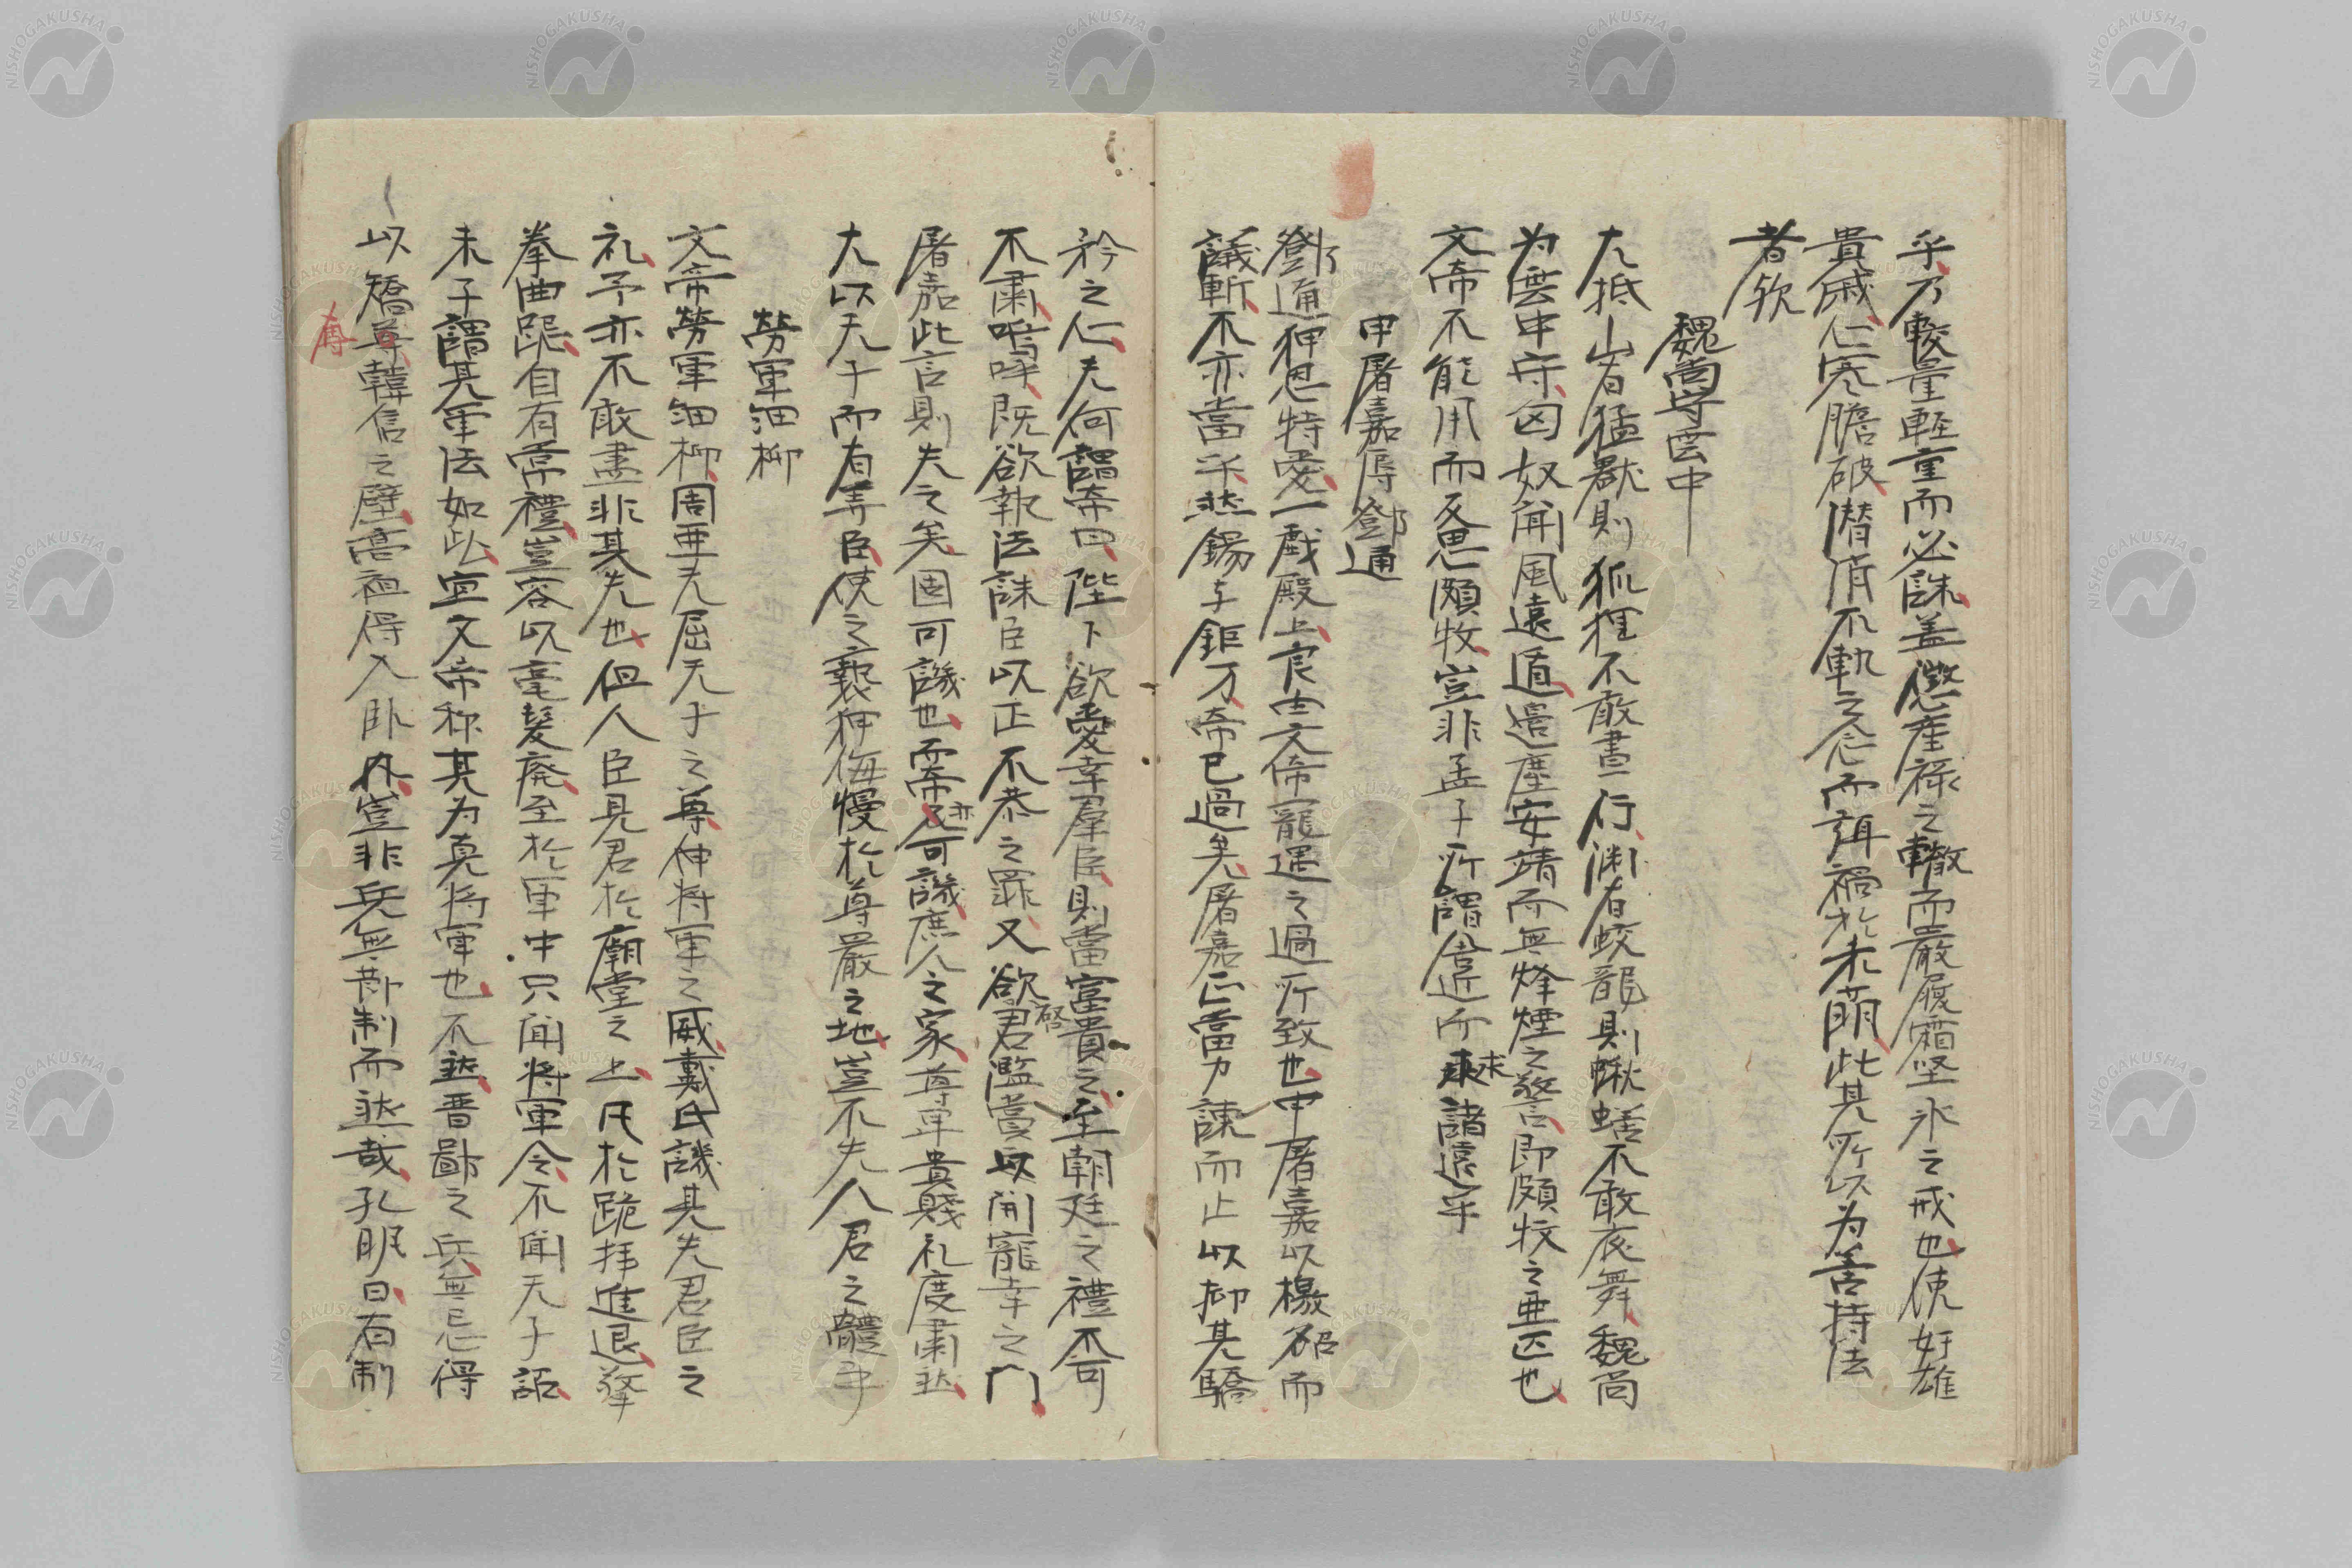 乎乃較量軽重而必誅盖懲産禄之轍而嚴履霜堅氷之戒也使奸雄
貴戚心寒膽破潜消不軌之念而弭禍於未萌此其所以为善持法
者欤
魏尚守雲中
大抵山有猛獣則狐狸不敢晝行渊有蛟龍則鰍蟮不敢夜舞魏尚
为雲中守匈奴聞風遠遁邉塵安靖而無烽煙之警即頗牧之亜匹也
文帝不能用而反思頗牧豈非孟子所謂舎近所求諸遠乎
申屠嘉辱鄧通
鄧通狎恩恃愛一戯殿上良由文帝寵遇之過所致也申屠嘉以檄召而
議斬不亦當乎然錫予鉅万帝已過矣屠嘉正當力諫而止以抑其驕
矜之心夫何謂帝曰陛下欲愛幸羣臣則當富貴之至朝廷之禮不可
不肅嗚呼既欲執法誅臣以正不恭之罪又欲君濫賞以開寵幸之門
屠嘉此言則失之矣固可譏也而帝亦可譏庶人之家尊卑貴賤礼度肅然
大以天子而有弄臣使之褻狎侮慢於尊嚴之地豈不失人君之體乎
勞軍細柳
文帝勞軍細柳周亜夫屈天子之尊伸将軍之威戴氏譏其失君臣之
礼予亦不敢盡非其失也但人臣見君於廟堂之上凡於跪拝進退擎
拳曲跽自有常禮豈容以毫髪廃至於軍中只聞将軍令不聞天子詔
未子謂其軍法如此宜文帝称其为真将軍也不然晋鄙之兵無忌得
以矯奪韓信之壁高祖得入卧内豈非兵無節制而然哉孔明曰有制
NISHOGAKUSHA